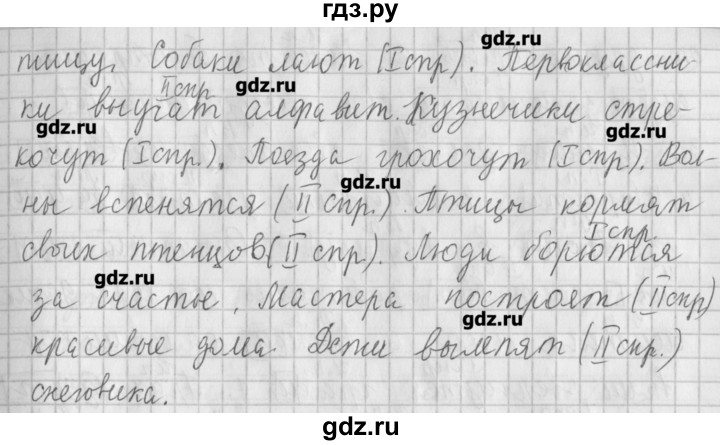 гдз.ру
пшицу. Собаки лают (I спр.). Первоклассни-
II спр.
ки выучат алфавит. Кузнечики стре-
кочут (I спр.). Поезда грохочут (I спр.). Вол-
ны вспенятся (II спр.). Птицы кормят
I спр.
своих птенцов (II спр.). Люди борются
за счастье. Мастера построят (II спр)
красивые дома. Дети вылепят (II спр.)
снеговика.
gdz.ru
gdz.ru
gdz.ru
gdz.ru
gdz.ru
gdz.ru
gdz.ru
gdz.ru